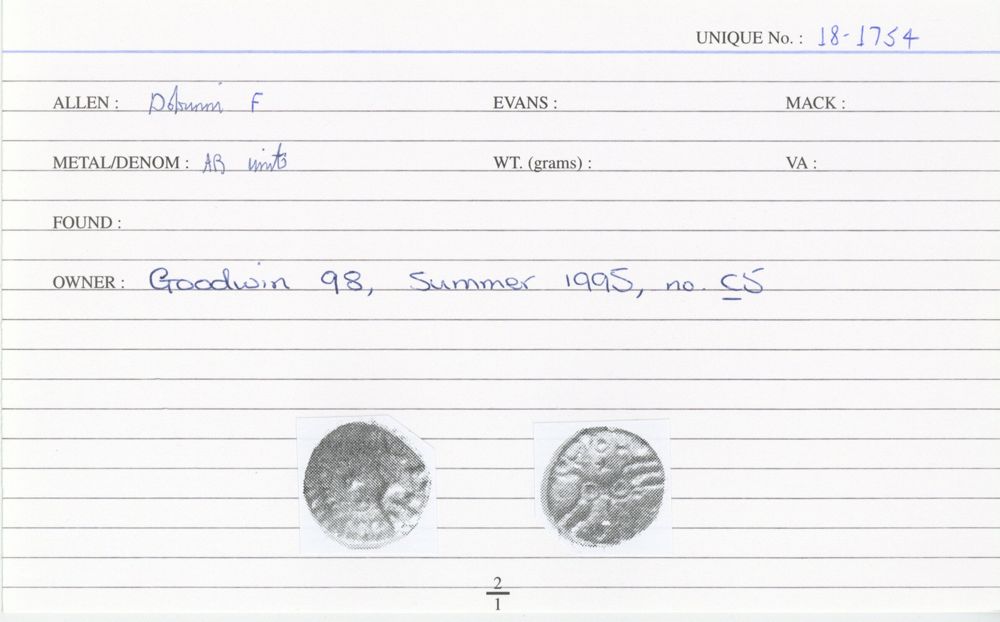 UNIQUE No. : 18-1754
ALLEN : Dobunni F EVANS : MACK :
METAL/DENOM : AR unit WT. (grams) : VA :
FOUND :
OWNER : Goodwin 98, Summer 1995, no. C5
2
1